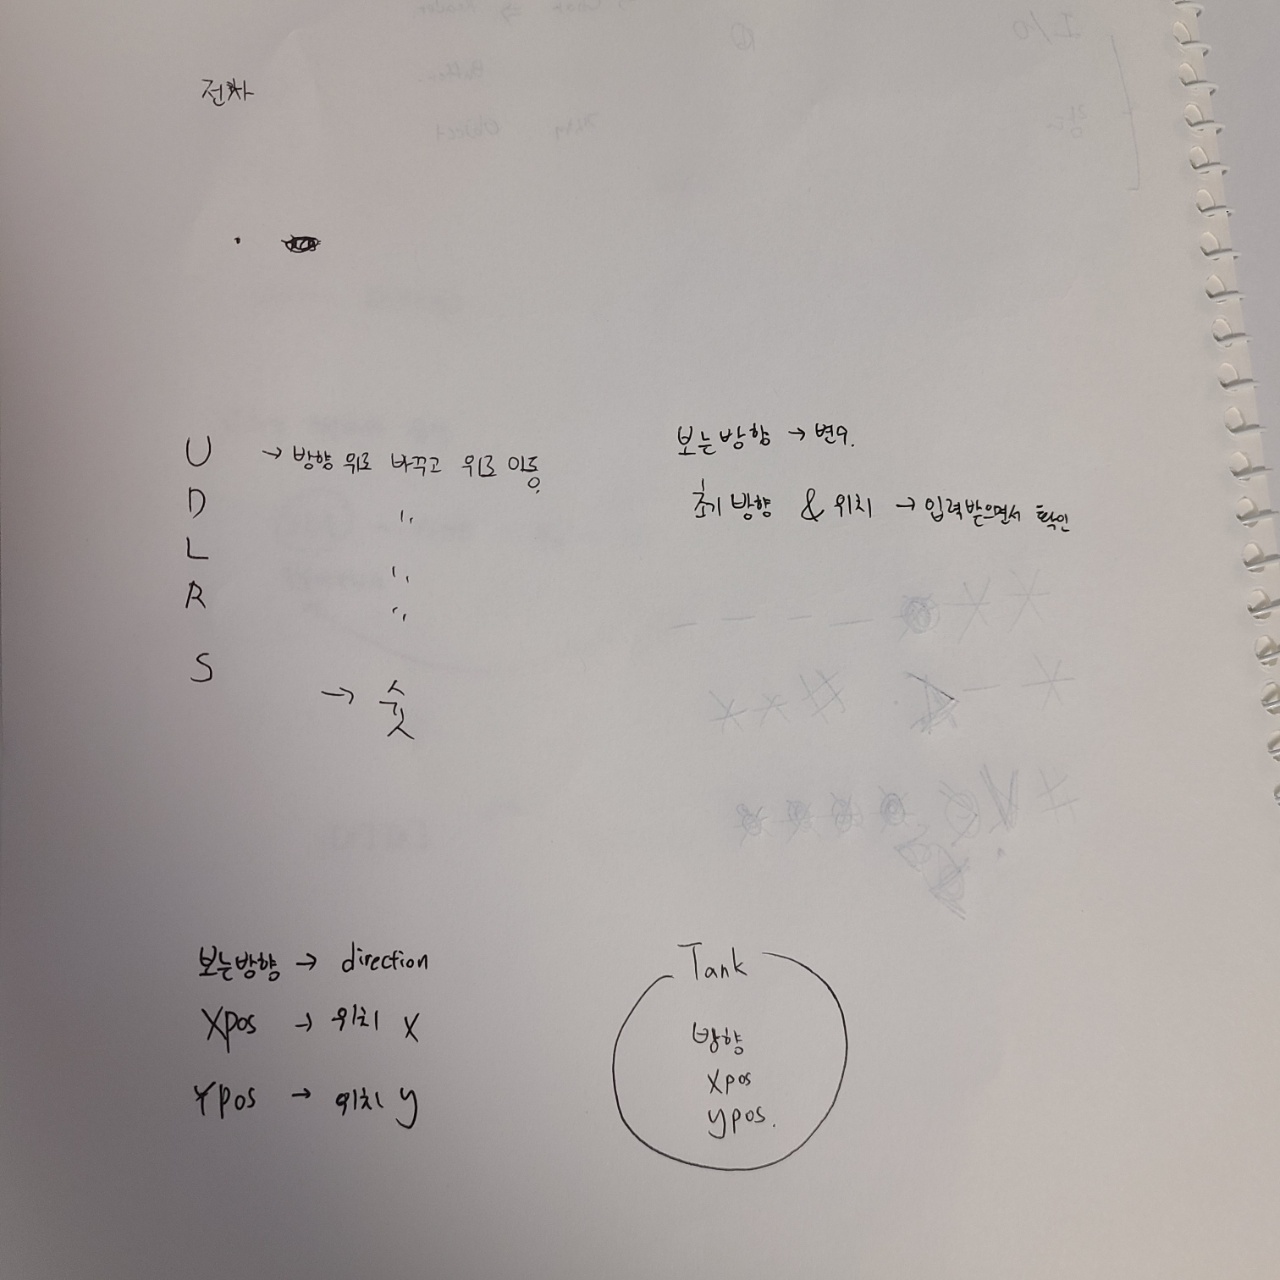 전차
U → 방향 위로 바꾸고 위로 이동.
D 〃
L 〃
R 〃
S → 슛
보는방향 → 변수.
초기 방향 & 위치 → 입력받으면서 확인
보는방향 → direction
Xpos → 위치 X
Ypos → 위치 y
Tank
방향
Xpos
ypos.